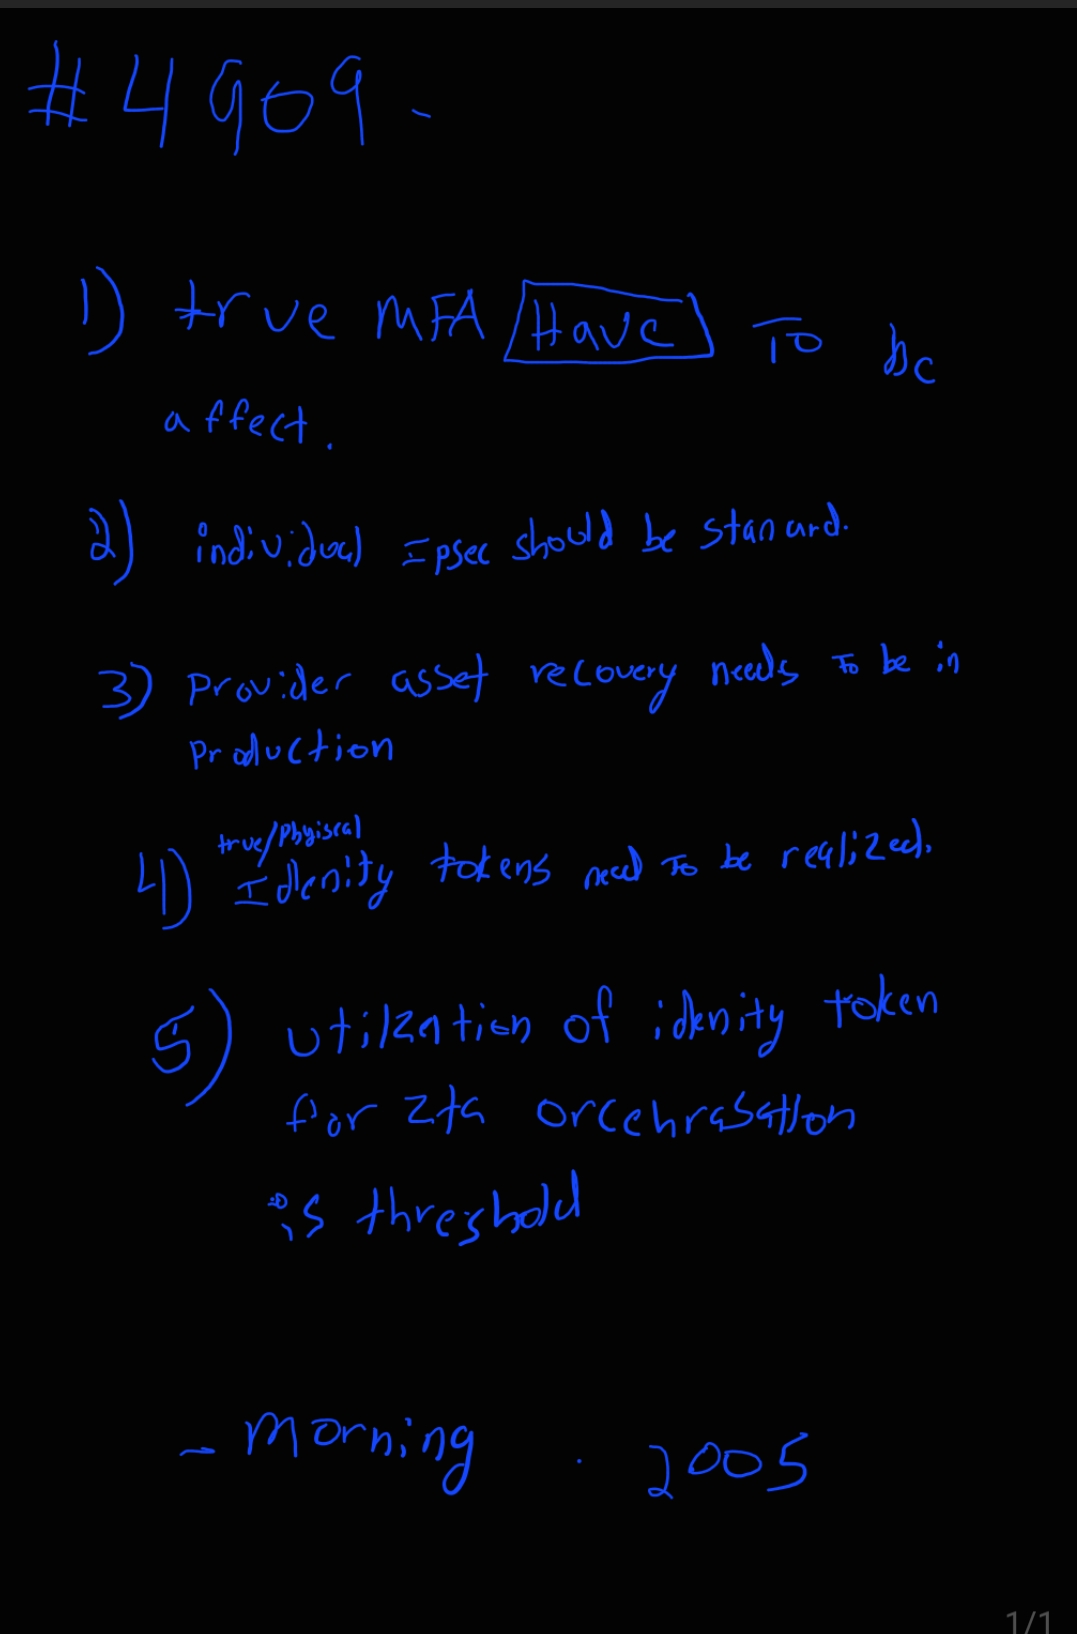 #4909-
1) true MFA Have To be
affect.
2) individual Ipsec should be stanard.
3) Provider asset recovery needs To be in
Production
true/phyiscal
4) Idenity tokens need To be realized.
5) utilzation of idenity token
for zta orcehrasation
is threshold
- morning . 2005
1/1